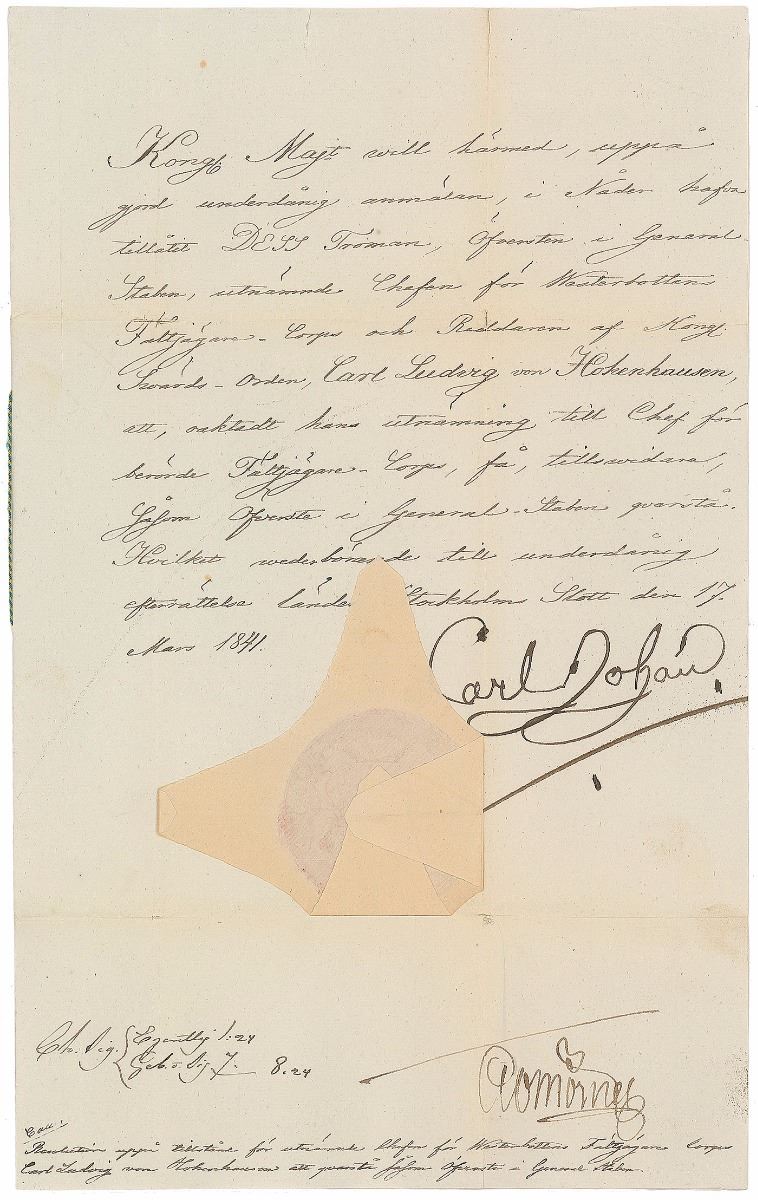 Kongl. Majt. will härmed, uppå
gjord underdånig anmälan, i Nåder hafva
tillåtit DESS Troman, Öfversten i General-
Staben, utnämnde Chefen för Westerbottens
Fältjägare-Corps och Riddaren af Kongl.
Swärds-Orden, Carl Ludvig von Hohenhausen,
att, oaktadt hans utnämning till Chef för
berörde Fältjägare-Corps, få, tillswidare,
såsom Öfverste i General-Staben qvarstå.
Hvilket wederbörande till underdånig
efterrättelse länder. Stockholms Slott den 17.
Mars 1841.
Carl Johan
Ch. Sig.
1.24
7. 8.24
Resolution uppå tillstånd för utnämnde Chefen för Westerbottens Fältjägare Corps
Carl Ludvig von Hohenhausen att qvarstå såsom Öfverste i General Staben.